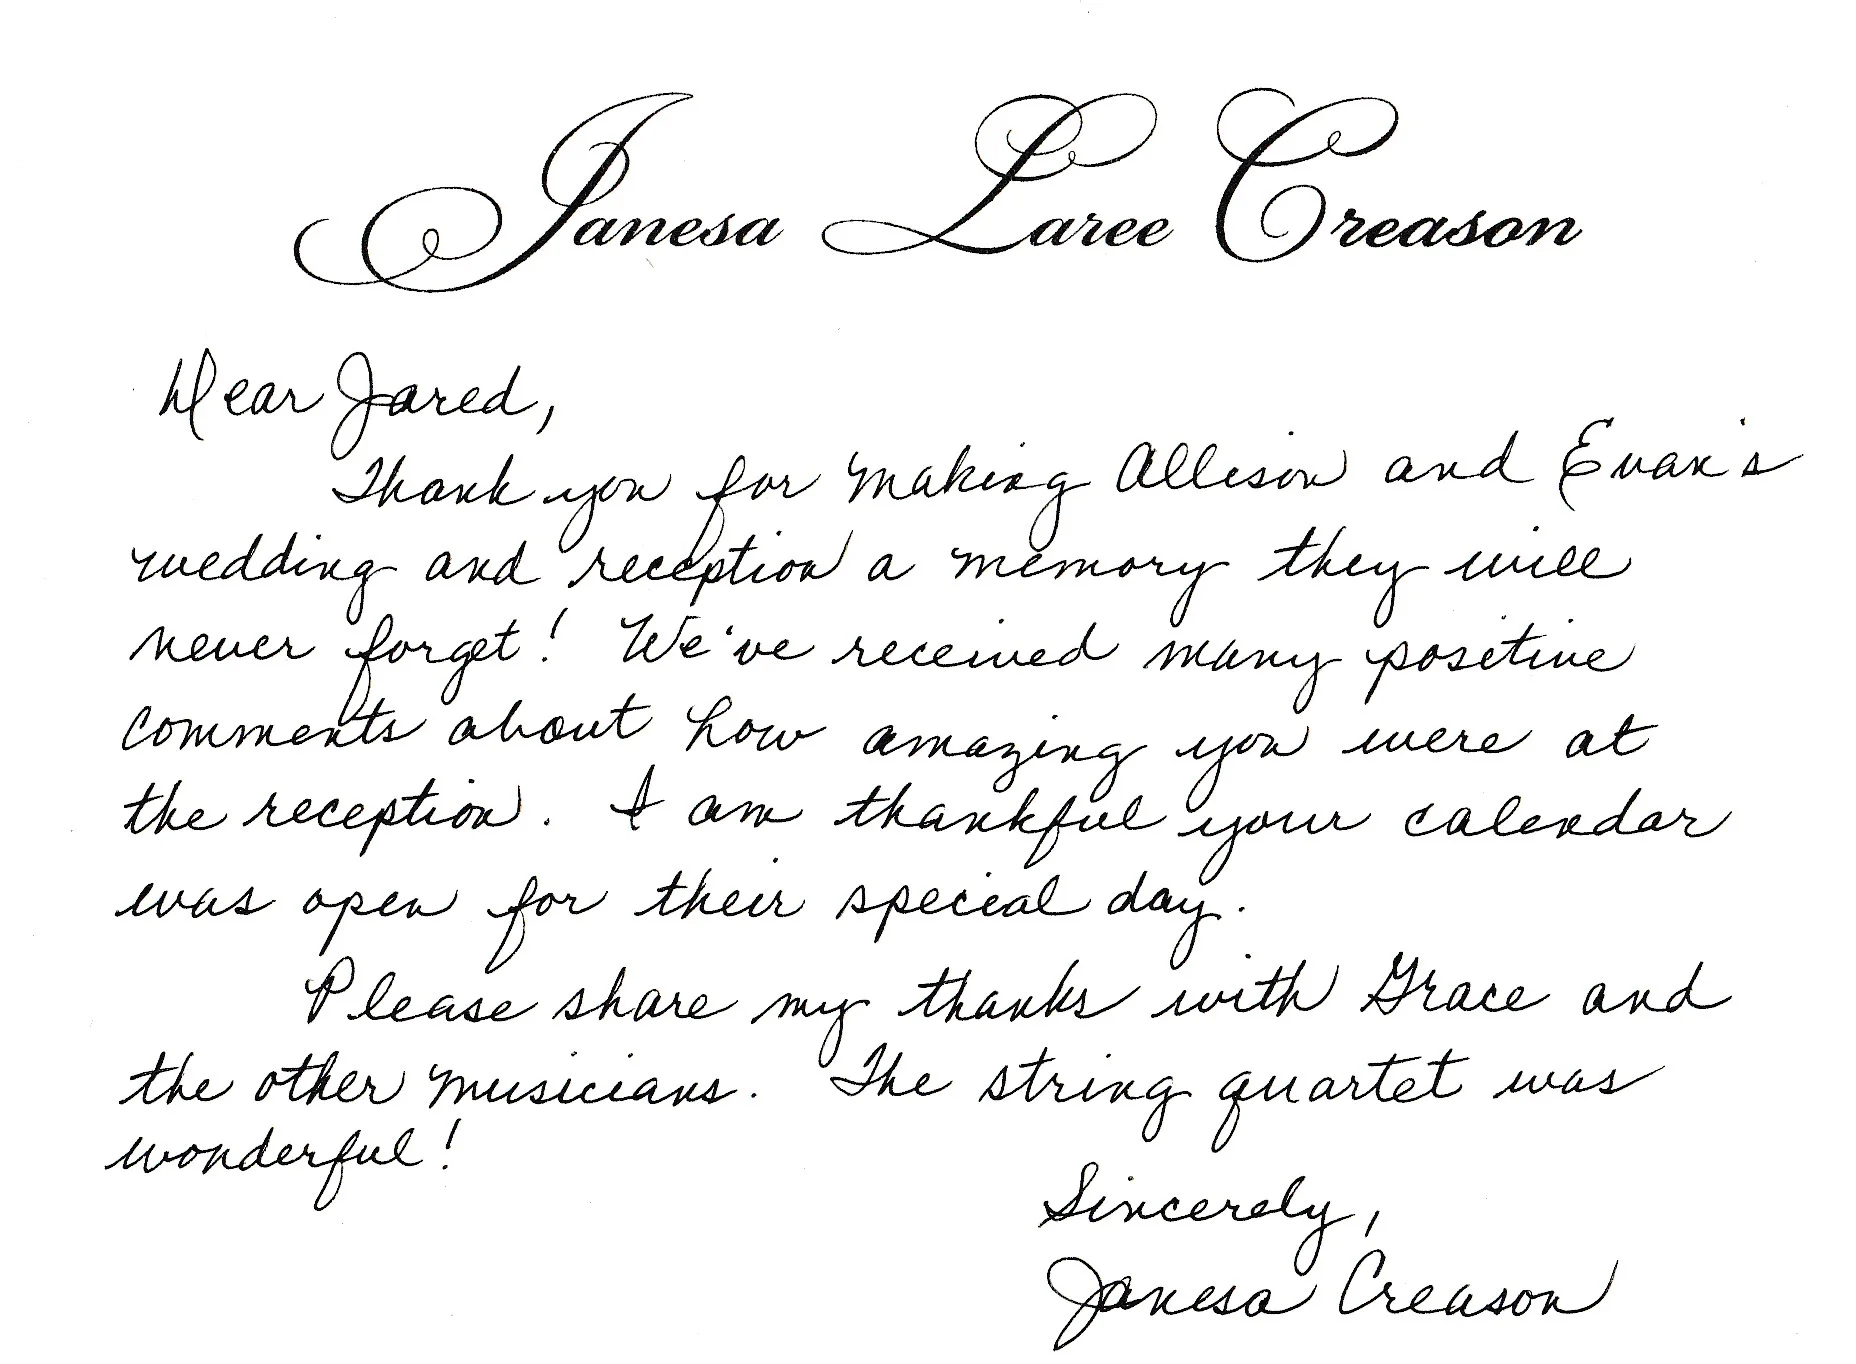 Janesa Laree Creason
Dear Jared,
Thank you for making Allison and Evan's
wedding and reception a memory they will
never forget! We've received many positive
comments about how amazing you were at
the reception. I am thankful your calendar
was open for their special day.
Please share my thanks with Grace and
the other musicians. The string quartet was
wonderful!
Sincerely,
Janesa Creason